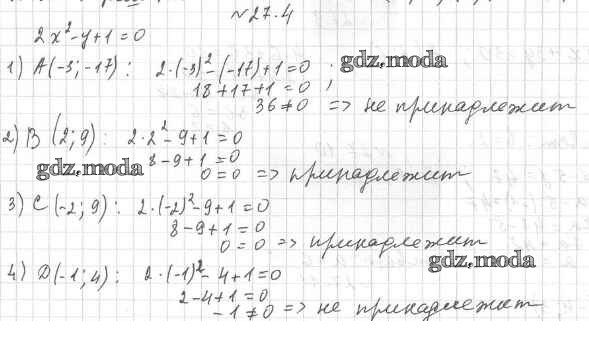 №27.4
2x²-y+1=0
1) A(-3;-17): 2·(-3)²-(-17)+1=0;
gdz.moda
18+17+1=0
36≠0 => не принадлежит
2) B (2;9): 2·2²-9+1=0
gdz.moda
8-9+1=0
0=0 => принадлежит
3) C(-2;9): 2·(-2)²-9+1=0
8-9+1=0
0=0 => принадлежит
gdz.moda
4) D(-1;4): 2·(-1)²-4+1=0
2-4+1=0
-1≠0 => не принадлежит